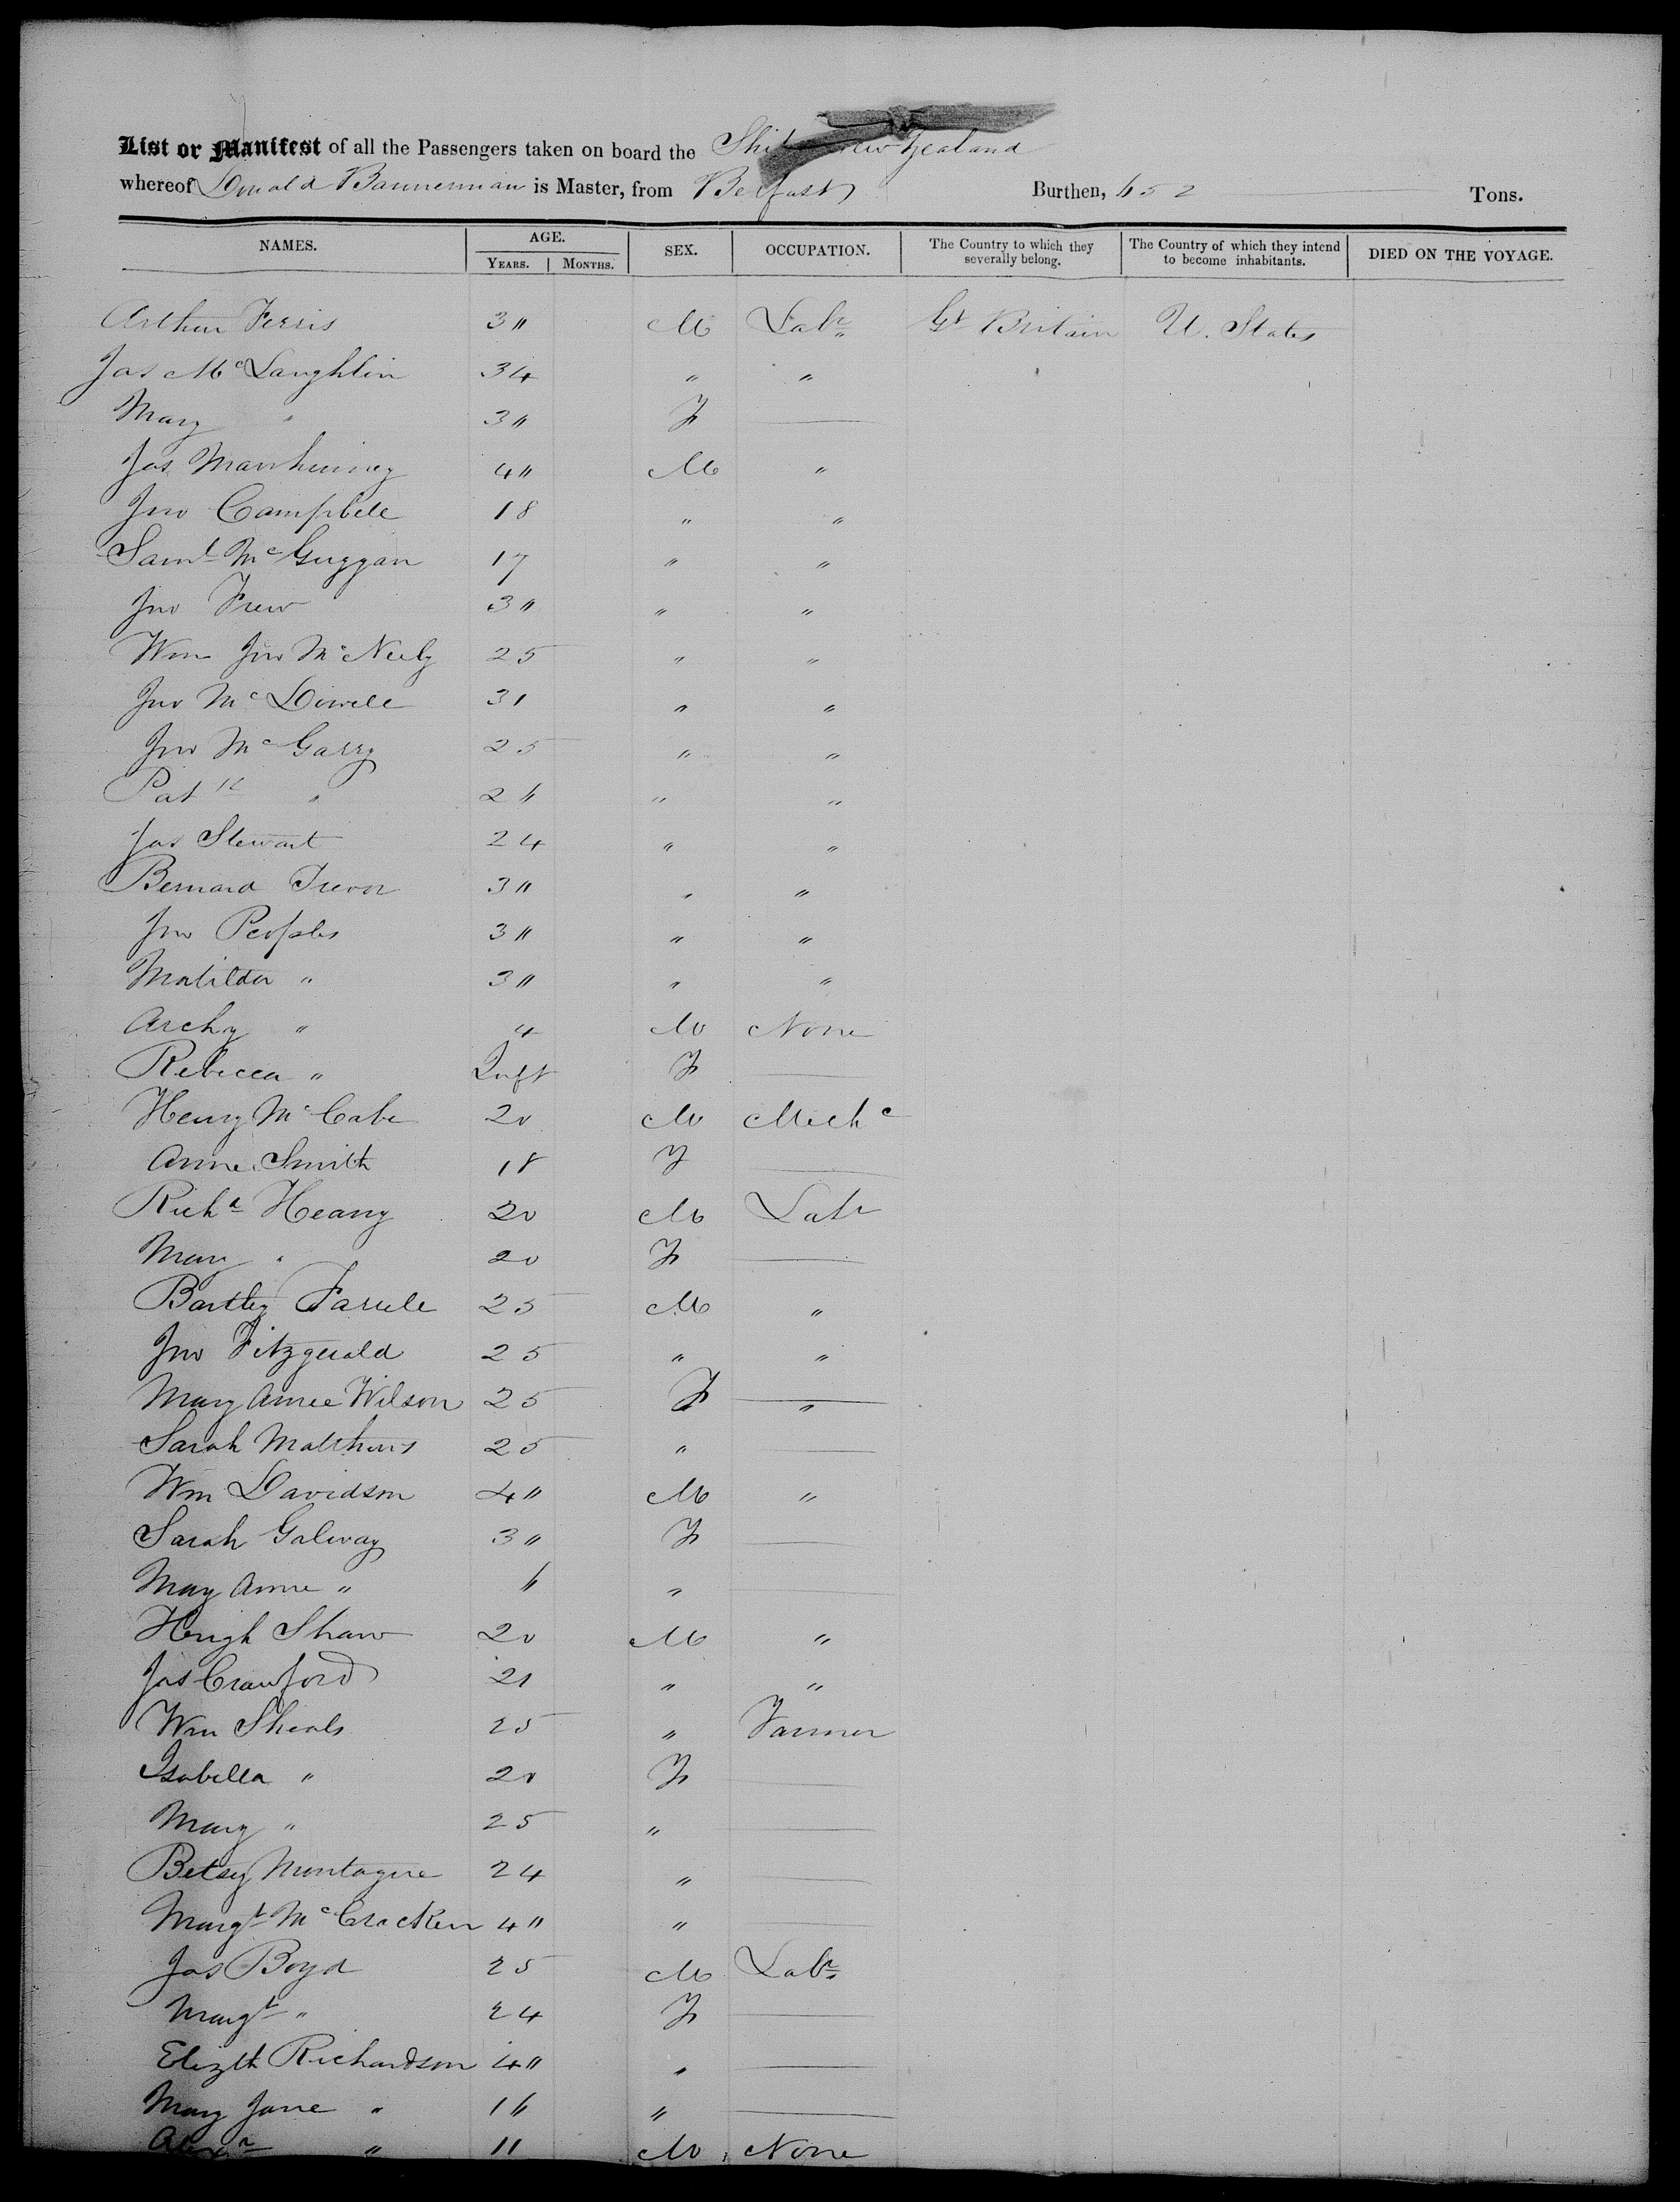 List or Manifest of all the Passengers taken on board the Ship New Zealand
whereof Donald Bannerman is Master, from Belfast Burthen, 652 Tons.
NAMES. AGE. SEX. OCCUPATION. The Country to which they severally belong. The Country of which they intend to become inhabitants. DIED ON THE VOYAGE.
YEARS. MONTHS.
Arthur Ferris 3" M Labr Gt Britain U. States
Jas McLaughlin 34 " "
Mary " 3" F
Jas Mawhinney 4" M "
Jno Campbell 18 " "
Saml McGuggan 17 " "
Jno Frew 3" " "
Wm Jno McNeely 25 " "
Jno McDowell 31 " "
Jno McGarry 25 " "
Patk " 26 " "
Jas Stewart 24 " "
Bernard Trevor 3" " "
Jno Peoples 3" " "
Matilda " 3" " "
Archy " 4 M None
Rebecca " Inft F
Henry McCabe 20 M Mechc
Anne Smith 18 F
Richd Heany 20 M Labr
Mary " 20 F
Bartley Farrell 25 M "
Jno Fitzgerald 25 " "
Mary Anne Wilson 25 F "
Sarah Matthews 25 "
Wm Davidson 4" M "
Sarah Galway 3" F
Mary Anne " 6 "
Hugh Shaw 20 M "
Jas Crawford 21 " "
Wm Sheals 25 " Farmer
Isabella " 20 F
Mary " 25 "
Betsy Montague 24 "
Margt McCracken 4" "
Jas Boyd 25 M Labr
Margt " 24 F
Elizth Richardson 4" "
Mary Jane " 16 "
Alexr " 11 M None